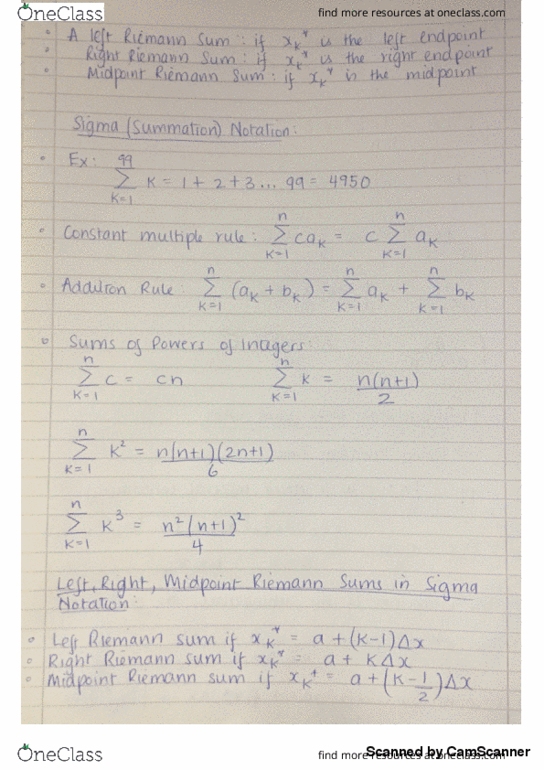 OneClass
find more resources at oneclass.com
• A left Riemann Sum : if xₖ* is the left endpoint
• Right Riemann Sum : if xₖ* is the right endpoint
• Midpoint Riemann Sum : if xₖ* is the midpoint
Sigma (Summation) Notation :
• Ex : 99∑K=1 K = 1 + 2 + 3 ... 99 = 4950
• Constant multiple rule : n∑K=1 caₖ = c n∑K=1 aₖ
• Addition Rule : n∑K=1 (aₖ + bₖ) = n∑K=1 aₖ + n∑K=1 bₖ
• Sums of Powers of Integers :
n∑K=1 c = cn n∑K=1 K = n(n+1)/2
n∑K=1 K² = n(n+1)(2n+1)/6
n∑K=1 K³ = n²(n+1)²/4
Left, Right, Midpoint Riemann Sums in Sigma
Notation :
• Left Riemann sum if xₖ* = a + (K-1)Δx
• Right Riemann sum if xₖ* = a + KΔx
• Midpoint Riemann sum if xₖ* = a + (K - 1/2)Δx
OneClass
find more resources at oneclass.com
Scanned by CamScanner